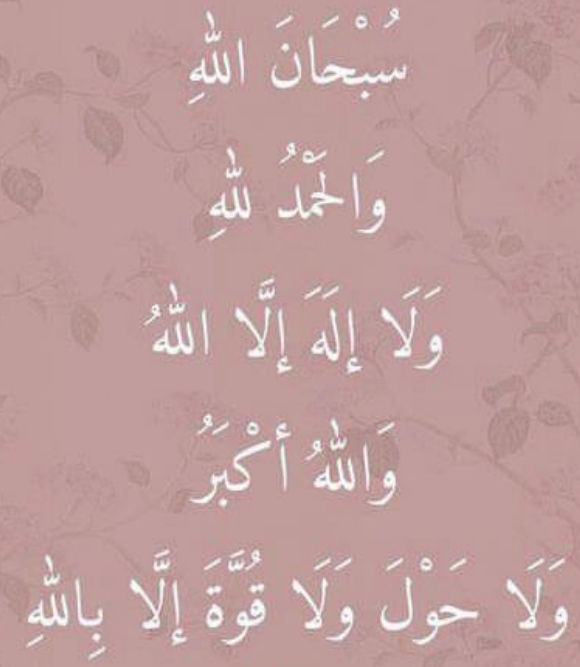 سُبْحَانَ اللهِ
وَالْحَمْدُ للهِ
وَلَا إِلَهَ إِلَّا اللهُ
وَاللهُ أَكْبَرُ
وَلَا حَوْلَ وَلَا قُوَّةَ إِلَّا بِاللهِ